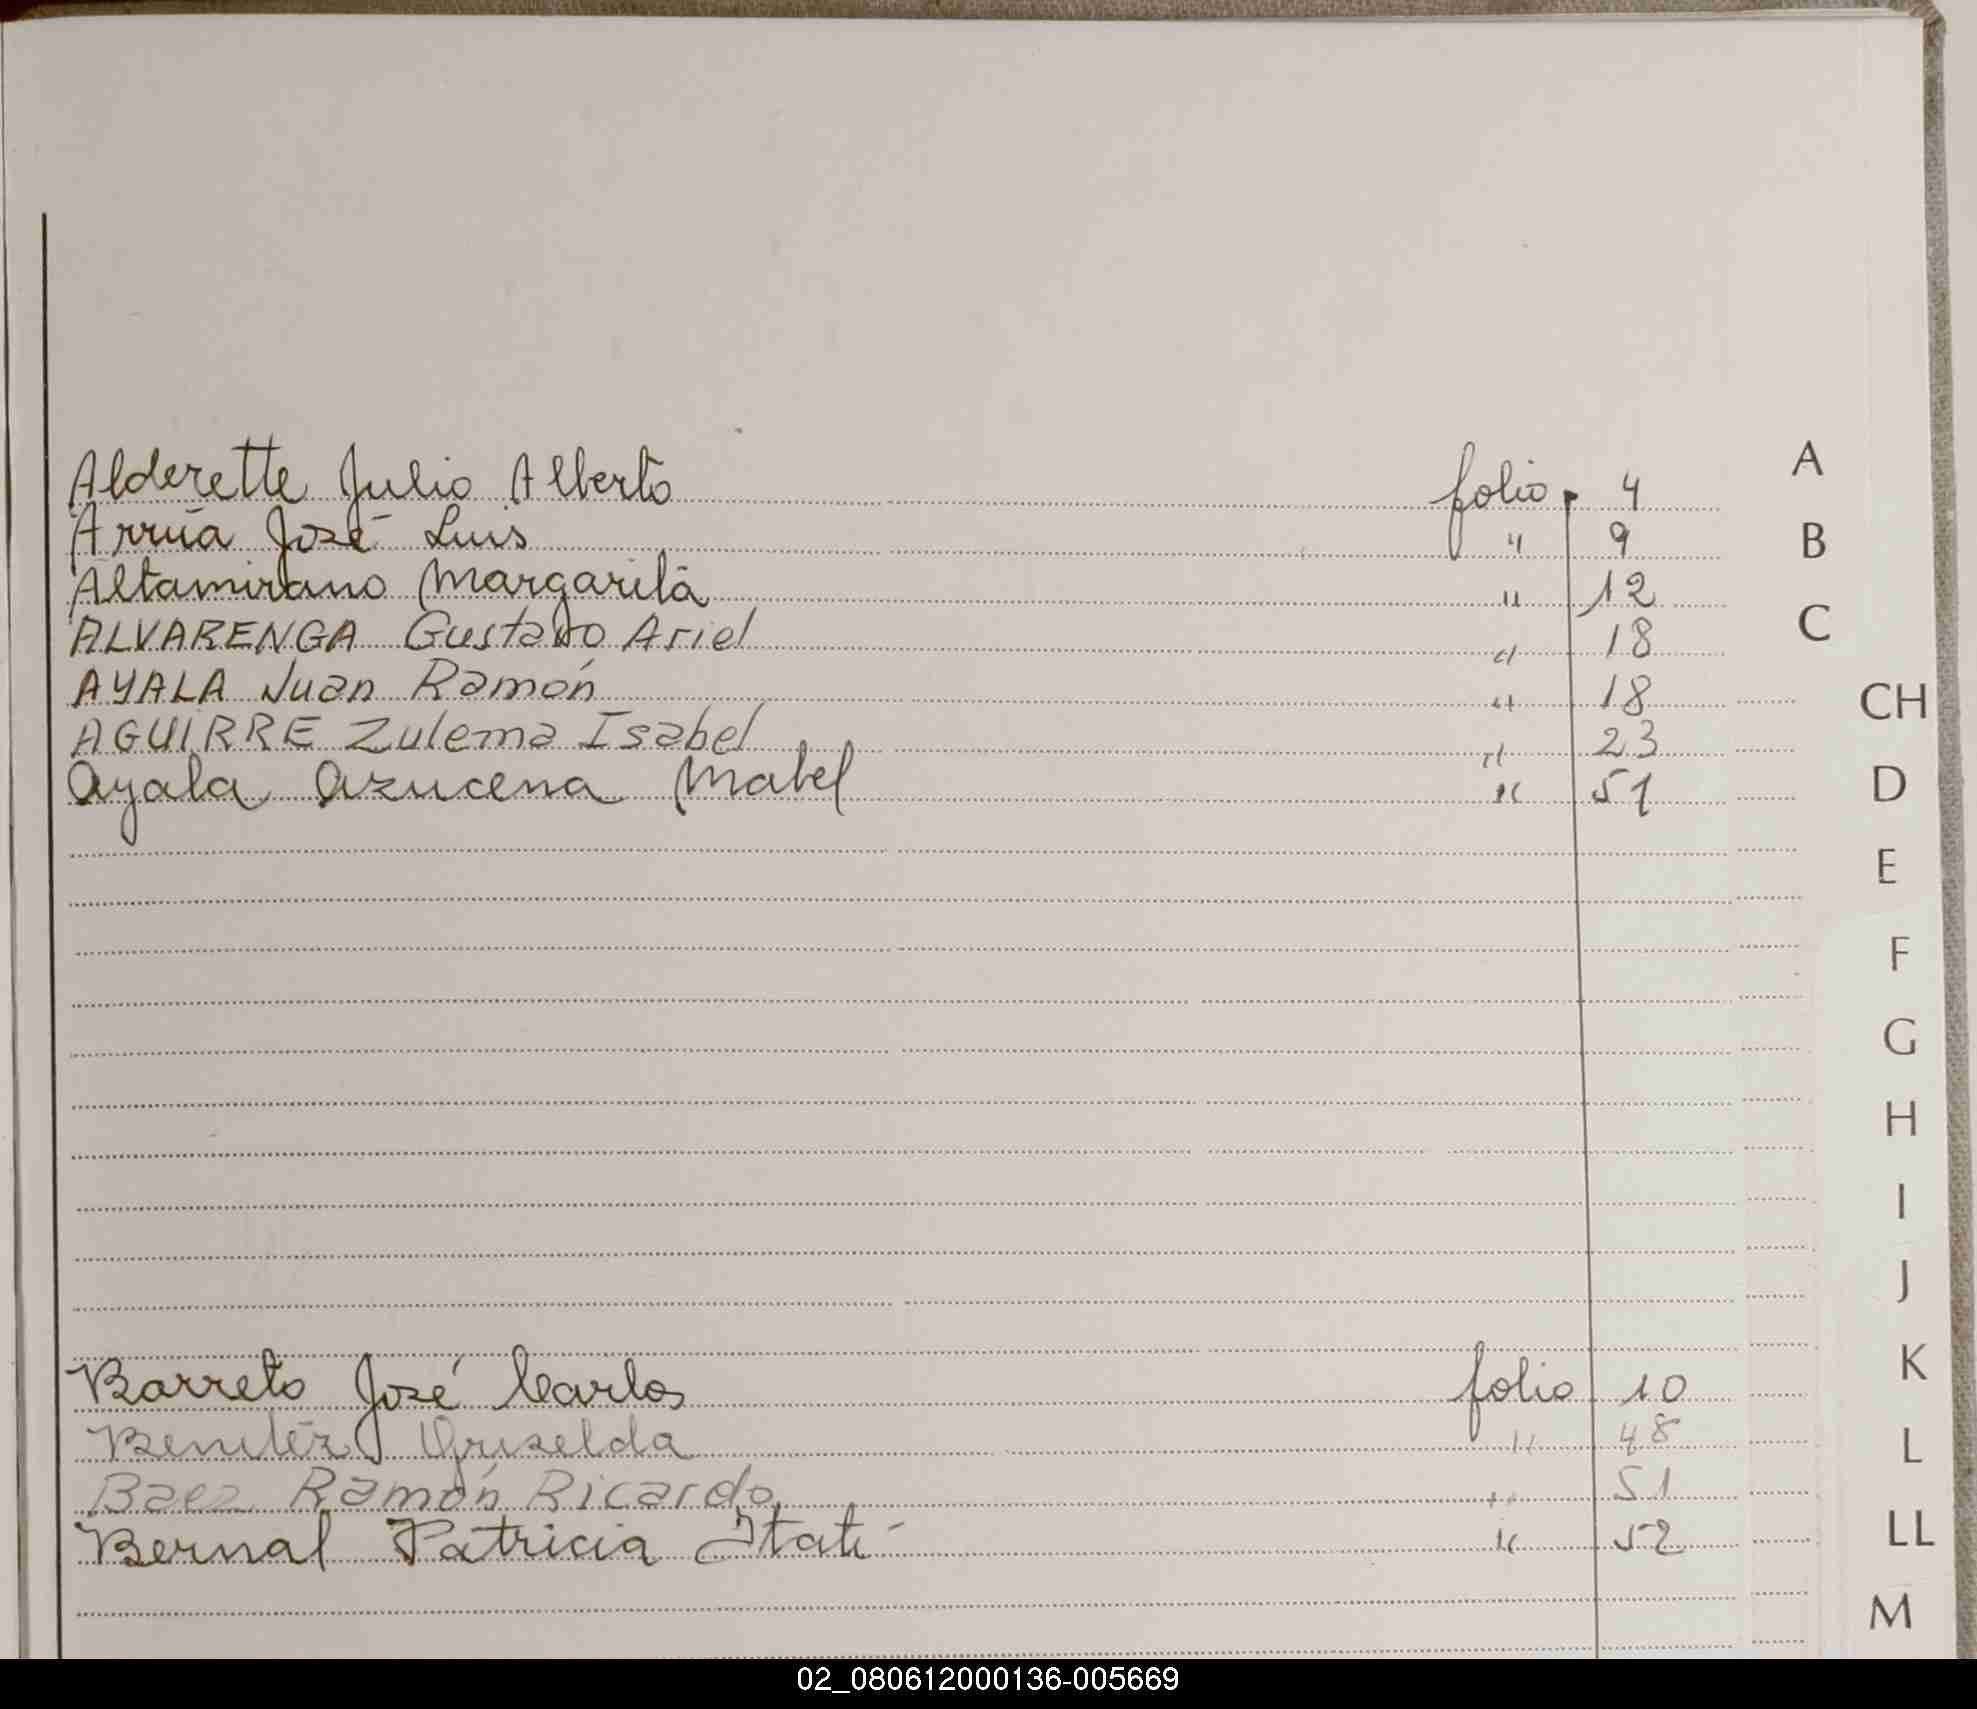 Alderette Julio Alberto folio 4
Arrúa José Luis " 9
Altamirano Margarita " 12
ALVARENGA Gustavo Ariel " 18
AYALA Juan Ramón " 18
AGUIRRE Zulema Isabel " 23
Ayala Azucena Mabel " 51
Barreto José Carlos folio 10
Benítez Griselda " 48
Baez Ramón Ricardo " 51
Bernal Patricia Itatí " 52
A
B
C
CH
D
E
F
G
H
I
J
K
L
LL
M
02_080612000136-005669